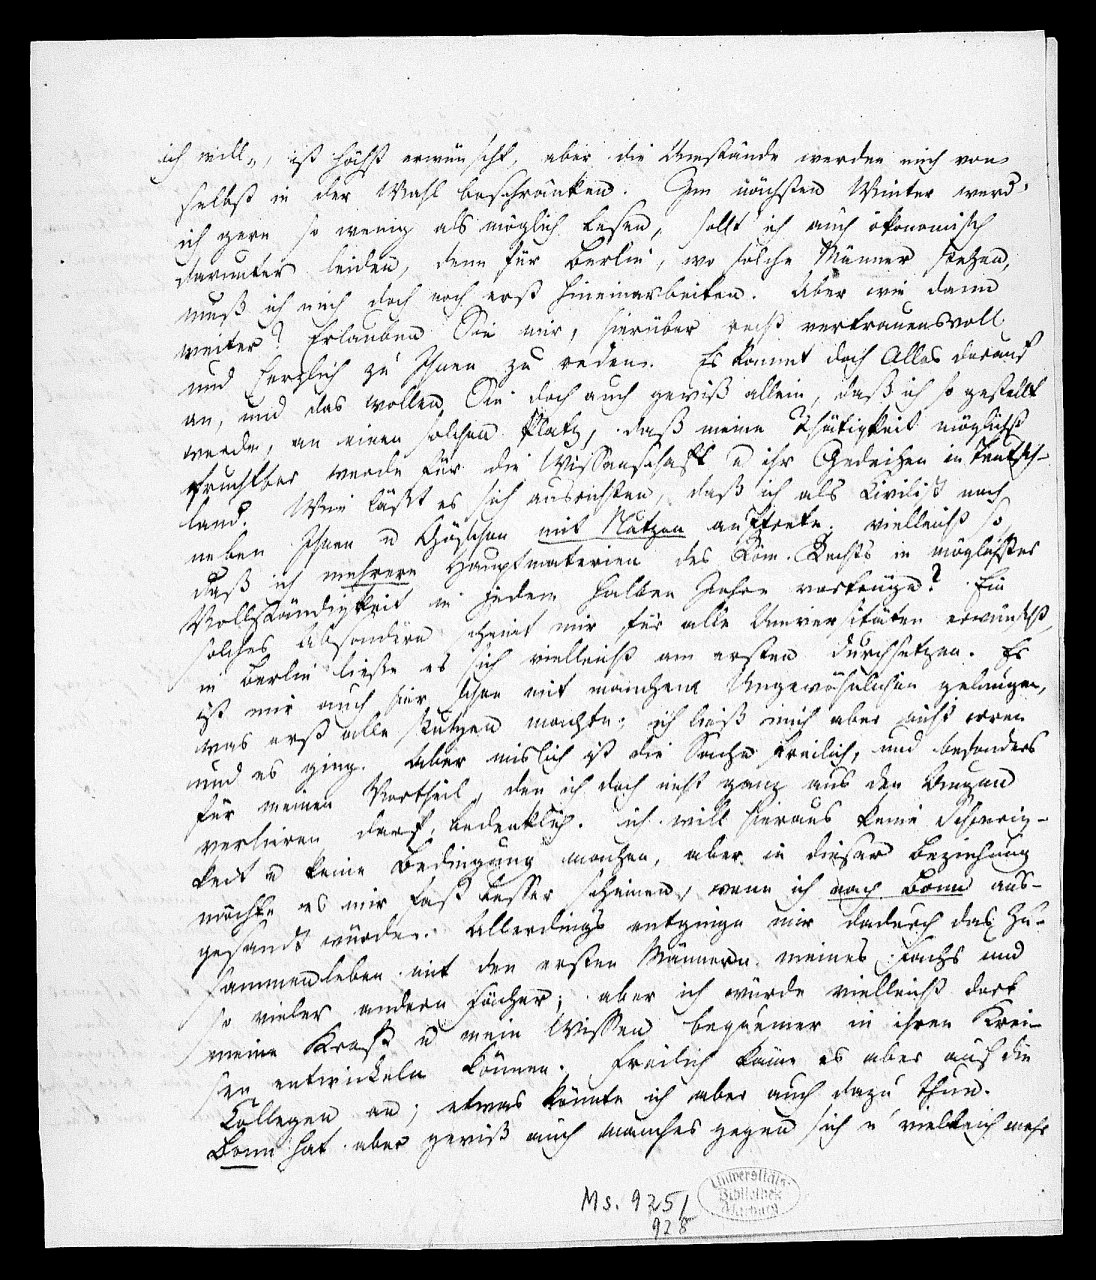 ich will„, ist höchst erwünscht, aber die Umstände werden mich von
selbst in der Wahl beschränken. Im nächsten Winter werd'
ich gern so wenig als möglich lesen, sollt ich auch ökonomisch
darunter leiden, denn für Berlin, wo solche Männer stehen,
muß ich mich doch noch erst hineinarbeiten. Aber wie dann
weiter? Erlauben Sie mir, hierüber recht vertrauensvoll
und herzlich zu Ihnen zu reden. Es kommt doch Alles darauf
an, und das wollen Sie doch auch gewiß allein, daß ich so gestellt
werde, an einen solchen Platz, daß meine Thätigkeit möglichst
fruchtbar werde für die Wissenschaft u ihr Gedeihen in Teutsch-
land. Wie läßt es sich ausrichten, daß ich als Civilist noch
neben Ihnen u Göschen mit Nutzen auftrete. vielleicht so,
daß ich mehrere Hauptmaterien des Röm. Rechts in möglichster
Vollständigkeit in jedem halben Jahre vortrüge? Ein
solches Absondern scheint mir für alle Universitäten erwünscht,
in Berlin ließe es sich vielleicht am ersten durchsetzen. Es
ist mir auch hier schon mit manchem Ungewöhnlichen gelungen,
was erst alle stutzen machte; ich ließ mich aber nicht irren
und es ging. Aber mislich ist die Sache freilich, und besonders
für meinen Vortheil, den ich doch nicht ganz aus den Augen
verlieren darf, bedenklich. ich will hieraus keine Schwierig-
keit u keine Bedingung machen, aber in dieser Beziehung
möchte es mir fast besser scheinen, wenn ich nach Bonn aus-
gesandt würde. Allerdings entginge mir dadurch das Zu-
sammenleben mit den ersten Männern meines Fachs und
so vieler andern Fächer; aber ich würde vielleicht dort
meine Kraft u mein Wissen bequemer in ihren Krei-
sen entwickeln können. Freilich käme es aber auch die
Collegen an; etwas könnte ich aber auch dazu thun.
Bonn hat aber gewiß auch manches gegen sich u vielleich mehr
Ms. 925/
928
Universitäts-
Bibliothek
Marburg